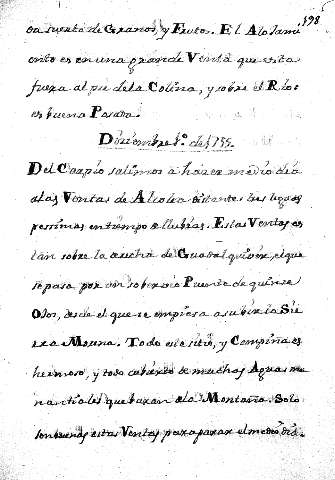 198
da suerte de Granos, y Frutos. El Aloxami
ento es en una grande Venta que esta
fuera al pie de la Colina, y sobre el Rio:
es buena Posada.
Diziembre 1º de 1755.
Del Carpio salimos à hazer medio dia
a las Ventas de Alcolea distantes tres leguas
pessimas en tiempo de llubias. Estas Ventas es
tan sobre la orilla de Guadalquivir, el que
se pasa por un soberbio Puente de quinse
Ojos, desde el que se empiesa a subir la Sie
rra Morena. Todo este sitio, y Campiña es
hermoso, y todo cubierto de muchas Aguas ma
nantiales que baxan de la Montaña. Solo
son buenas estas Ventas para pasar el medio dia.